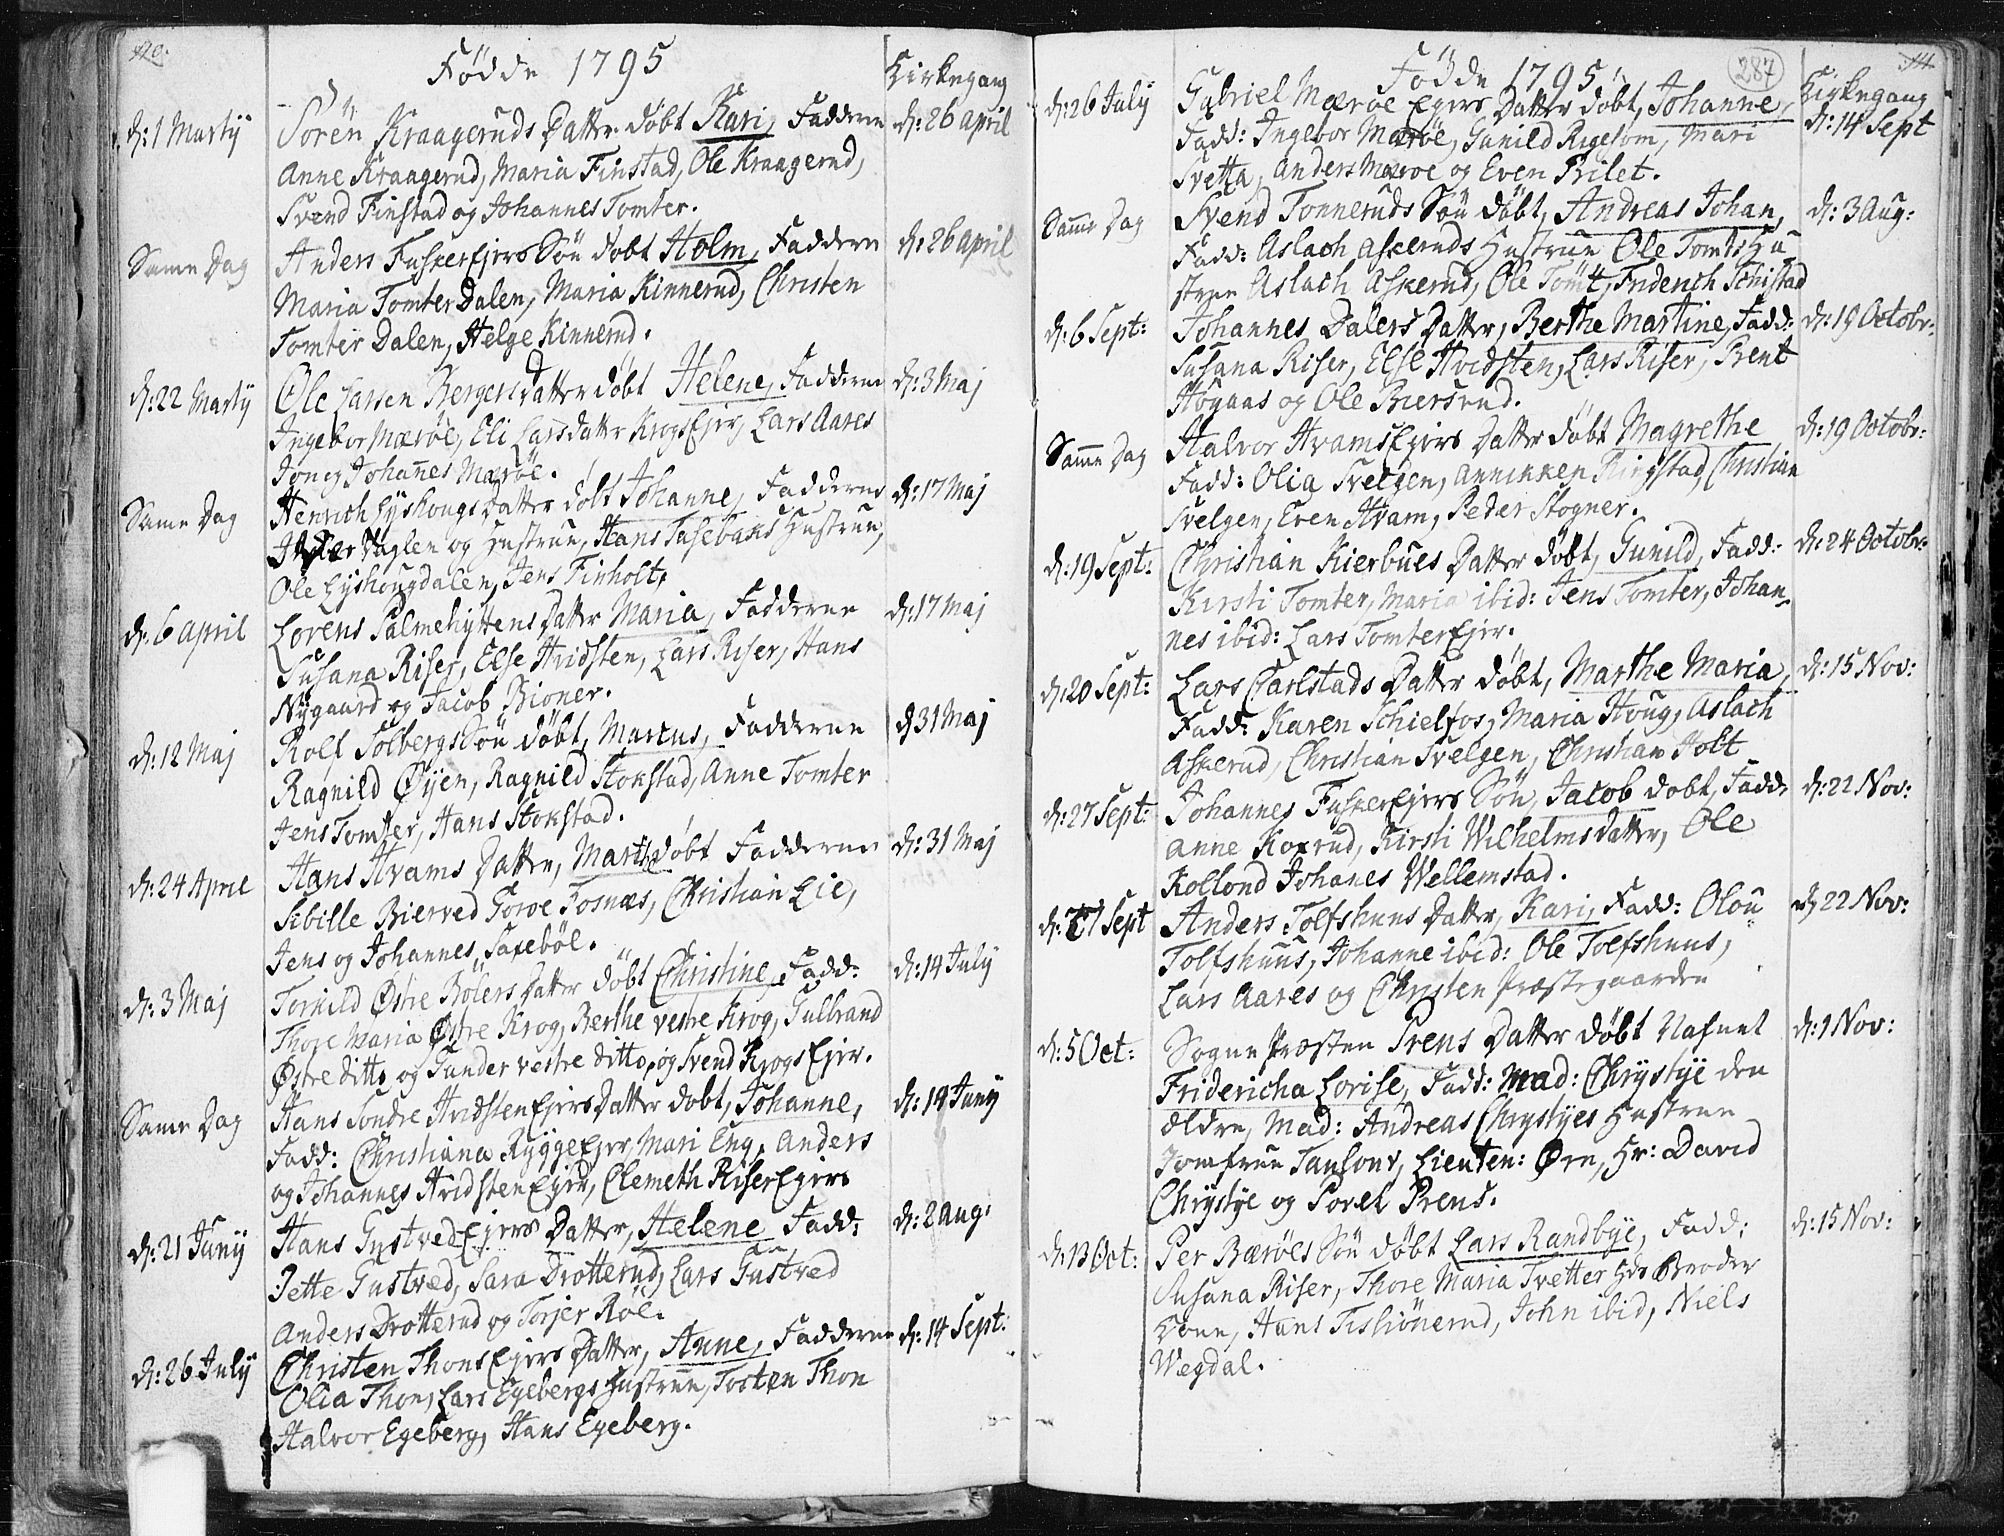 Fødde 1795
Kirkegang
d: 1 Martÿ Sören Kraageruds Datter döbt Kari, Fadderne d: 26 april
Anne Kraagerud, Maria Finstad, Ole Kraagerud,
Svend Finstad og Johannes Tomter.
Same Dag Anders FuskerEjers Sön döbt Holm, Faddere d: 26 april
Maria TomterDalen, Maria Kinnerud, Christen
Tomter Dalen, Helge Kinnerud.
d: 22 Martÿ Ole Larsen Bergers Datter döbt Helene, Fadderne d: 3 Maj
Ingebor Mæröe, Eli Larsdatter KrogsEjer, Lars Aares
Jon og Johan̄es Mæröe.
Same Dag Henrich Lyskougs Datter döbt Johanne, Fadderne d: 17 Maj
Daglen og Hustrue, Hans Hustrue,
Ole Lyshougdalen, Jens Finholt,
d: 6 april Lorens Palmehÿttens Datter Maria, Fadderne d: 17 Maj
Susana Riser, Else Hvidsten, Lars Riser, Hans
Nÿgaard og Jacob Bioner.
d: 12 Maj Rolf Solbergs Sön döbt, Marcus, Fadderne d 31 Maj
Ragnild Øÿen, Ragnild Stokstad, Anne Tomter
Jens Tomter, Hans Stokstad.
d: 24 April Hans Hvams Datter, Marthe döbt Fadderne d: 31 Maj
Sibille Bierved Torve Fosnæs, Christian Lie,
Jens og Johannes Saxeböl.
d: 3 Maj Torkild Østre Röiers Datter döbt Christine, Fadd: d: 14 July
Thore Maria Østre Krog, Berthe vestre Krog, Gulbrand
Østre ditto og Gunder vestre ditto, og Svend KrogsEjer.
Same Dag Hans Söndre HvidstenEjers Datter döbt, Johanne, d: 14 Junÿ
Fadd: Christiana RÿggeEjer, Mari Eng, Anders
og Johannes HvidstenEjer, Clemeth RiserEjer
d: 21 Junÿ Hans GustvedEjers Datter, Helene Fadd: d: 2 Aug:
Jette Gustved, Sara Drotterud, Lars Gustved
Anders Drotterud og Torjer Röe.
d: 26 Julÿ Christen ThonsEjers Datter, Anne, Fadderne d: 14 Sept:
Olia Thon, Lars Egebergs Hustrue, Tosten Thon
Halvor Egeberg, Hans Egeberg.
287
Fødde 1795
Kirkegang
d: 26 July Gabriel Mæröe Ejers Datter döbt, Johanne, d: 14 Sept
Fadd: Ingebor Mæröe, Gunild Rigesom, Mari
Svetta, Anders Mæröe og Even Prilet.
Sam̄e Dag Svend Tonneruds Sön döbt, Andreas Johan, d: 3 Aug:
Fadd: Aslach Askeruds Hustrue Ole Tomts Hu
strue Aslach Askerud, Ole Tomt, Friderich Schistad
d: 6 Sept: Johannes Dalers Datter, Berthe Martine, Fadd: d: 19 Octobr:
Susana Riser, Else Hvidsten, Lars Riser, Brent
Högaas og Ole Biersrud.
Sam̄e Dag Halvor HvamsEjers Datter döbt Magrethe d: 19 Octobr:
Fadd: Olia Svelgen, Anniken Ringstad, Christian
Svelgen, Even Hvam, Peder Stogner.
d: 19 Sept: Christian Kierbües Datter döbt, Gunild, Fadd: d: 24 Octobr:
Kirsti Tomter, Maria ibid: Jens Tomter, Johan
nes ibid: Lars TomterEjer.
d: 20 Sept: Lars Carlstads Datter döbt, Marthe Maria, d: 15 Nov:
Fadd: Karen Schielfos, Maria Houg, Aslach
Askerud, Christian Svelgen, Christian Holt
d: 27 Sept: Johannes FuskerEjers Sön, Jacob döbt, Fadd: d: 22 Nov:
Anne Koxrud, Kirsti Wilhelms datter, Ole
Kollond Johanes Wellemstad.
d: 27 Sept Anders Tolfshuus Datter, Kari, Fadd: Olou d: 22 Nov:
Tolfshuus, Johanne ibid: Ole Tolfshuus,
Lars Aares og Christen Præstegaarden
d: 5 Oct: Sogne Præsten Irens Datter döbt Nafnet d: 1 Nov:
Fridericha Lovise, Fadd: Mad: Chrÿstÿe den
ældre, Mad: Andreas Chrÿstÿes Hustrue
Jomfrue Tausonr, Lieuten: Øre, Hr: David
Chrÿstÿe og Sorel Prens.
d: 13 Oct: Per Bæröes Sön döbt Lars Randbÿe, Fadd: d: 15 Nov:
Susana Riser, Thore Maria Tvetter Hds Broder
Kone, Hans Tiskiönerud, John ibid, Niels
Wegdal.